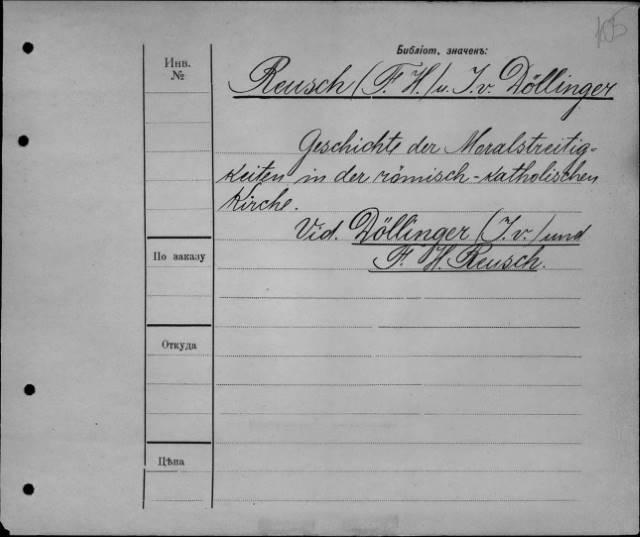 105
Библіот. значекъ:
Инв.
№
Reusch (F. H.) u. I. v. Döllinger
Geschichte der Moralstreitig-
keiten in der römisch-katholischen
Kirche.
Vid. Döllinger (I. v.) und
F. H. Reusch.
По заказу
Откуда
Цѣна